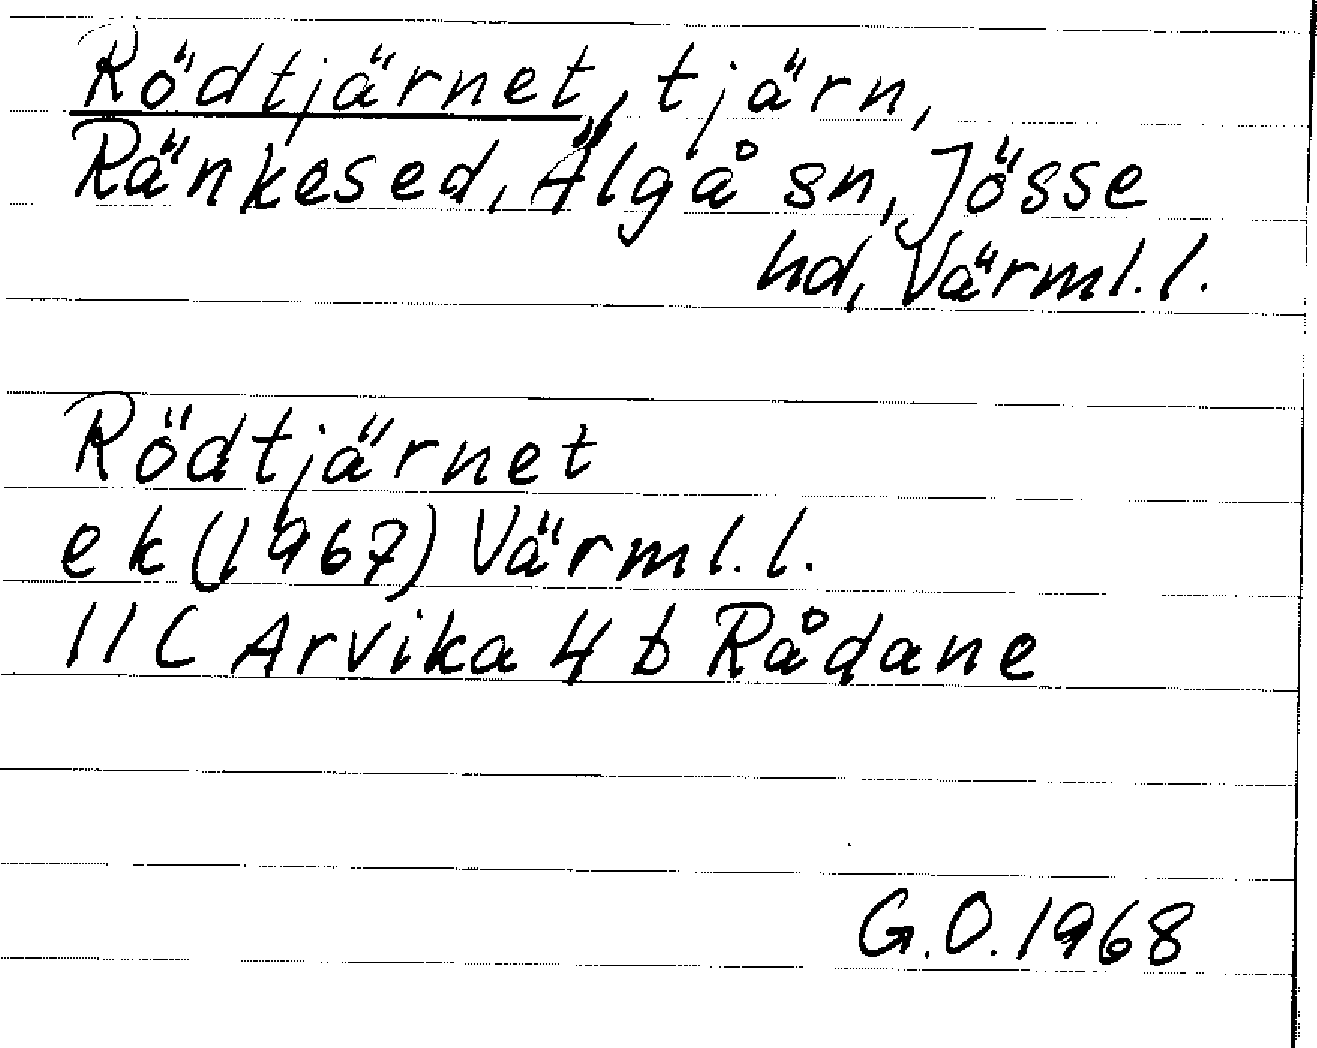 Rödtjärnet, tjärn,
Ränkesed, Älgå sn, Jösse
hd, Värml.l.
Rödtjärnet
ek (1967) Värml.l.
11C Arvika 4 b Rådane
G.O.1968